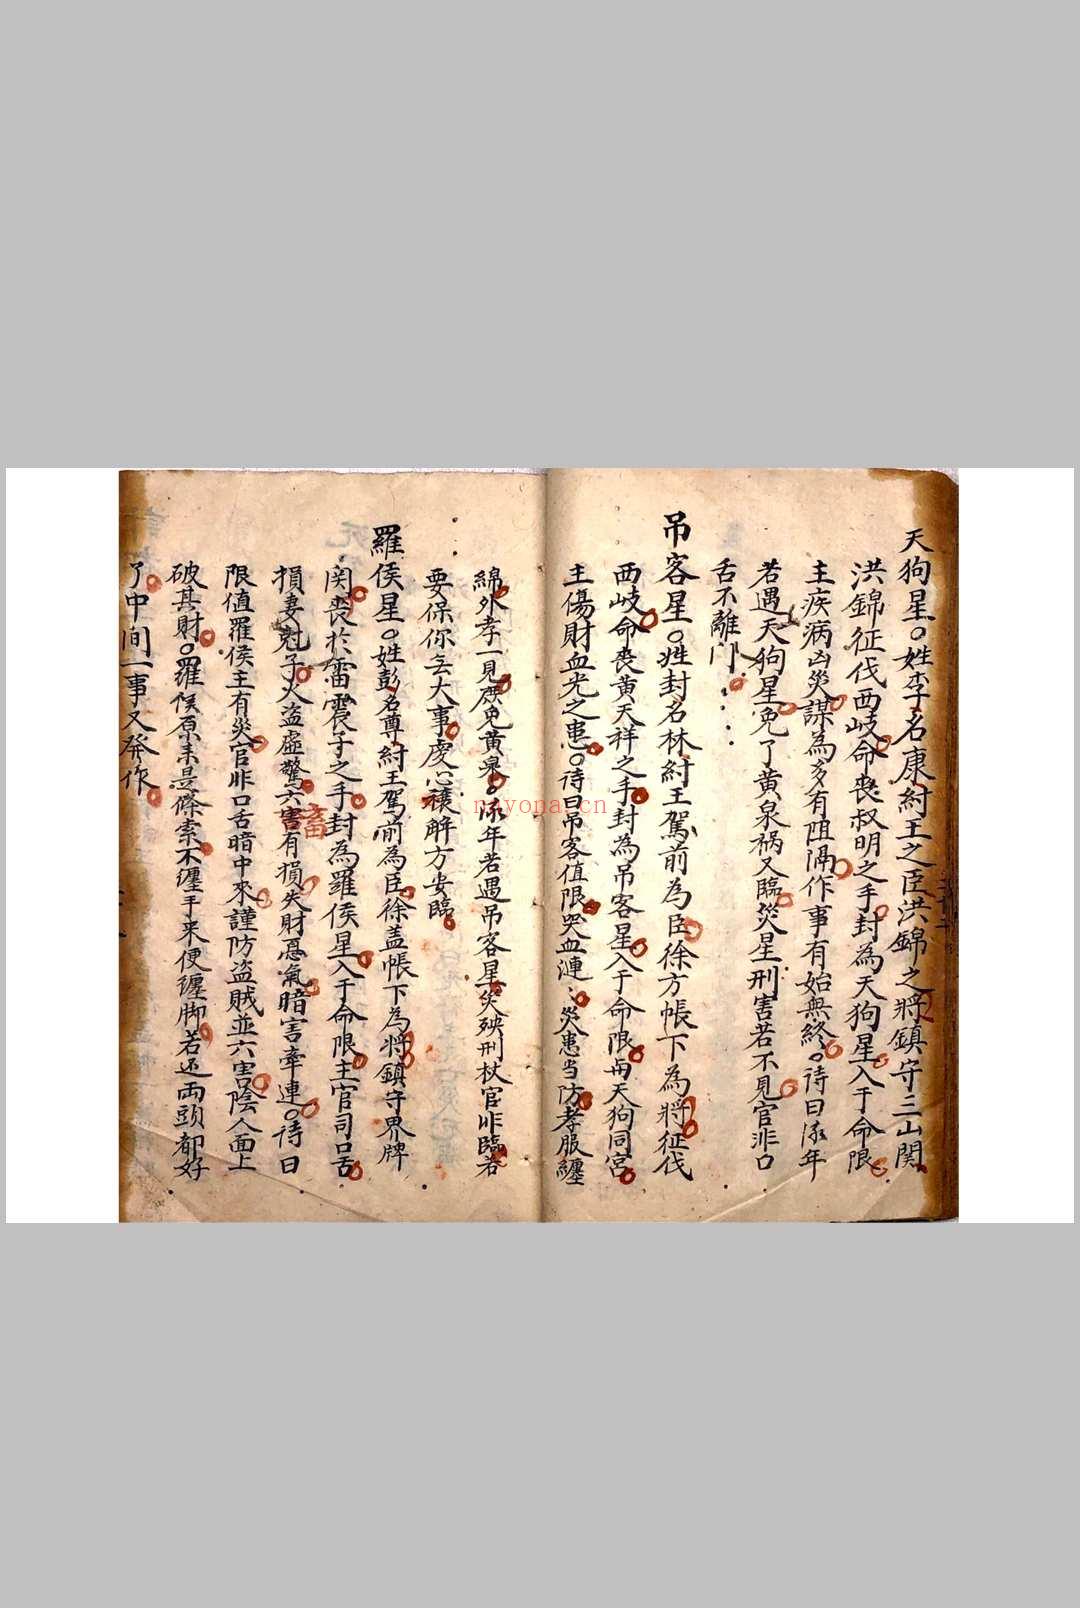 天狗星。姓李名康紂王之臣洪錦之將鎮守三山関
洪錦征伐西岐命喪叔明之手封為天狗星入于命限
主疾病凶災謀為多有阻隔作事有始無終。诗曰流年
若遇天狗星免了黄泉祸又臨災星刑害若不見官非口
舌不離门
吊客星。姓封名林紂王駕前為臣徐方帳下為將征伐
西岐命喪黄天祥之手封為吊客星入于命限毋天狗同宮
主傷財血光之患。诗曰吊客值限哭血漣災患当防孝服纒
綿外孝一見庶免黄泉。流年若遇吊客星災殃刑杖官非臨若
要保你無大事虔心禳解方安臨
羅侯星。姓彭名尊紂王駕前為臣徐盖帳下為將鎮守界牌
関喪於雷震子之手封為羅侯星入于命限主官司口舌
損妻尅子火盗虚驚六害有損失財惹氣暗害牽連。诗曰
畜
限值羅侯主有災官非口舌暗中來謹防盗賊並六害陰人面上
破其財。羅侯原来是條索不纒手来便纒脚若还両頭都好
了中间一事又發作
nayona.cn